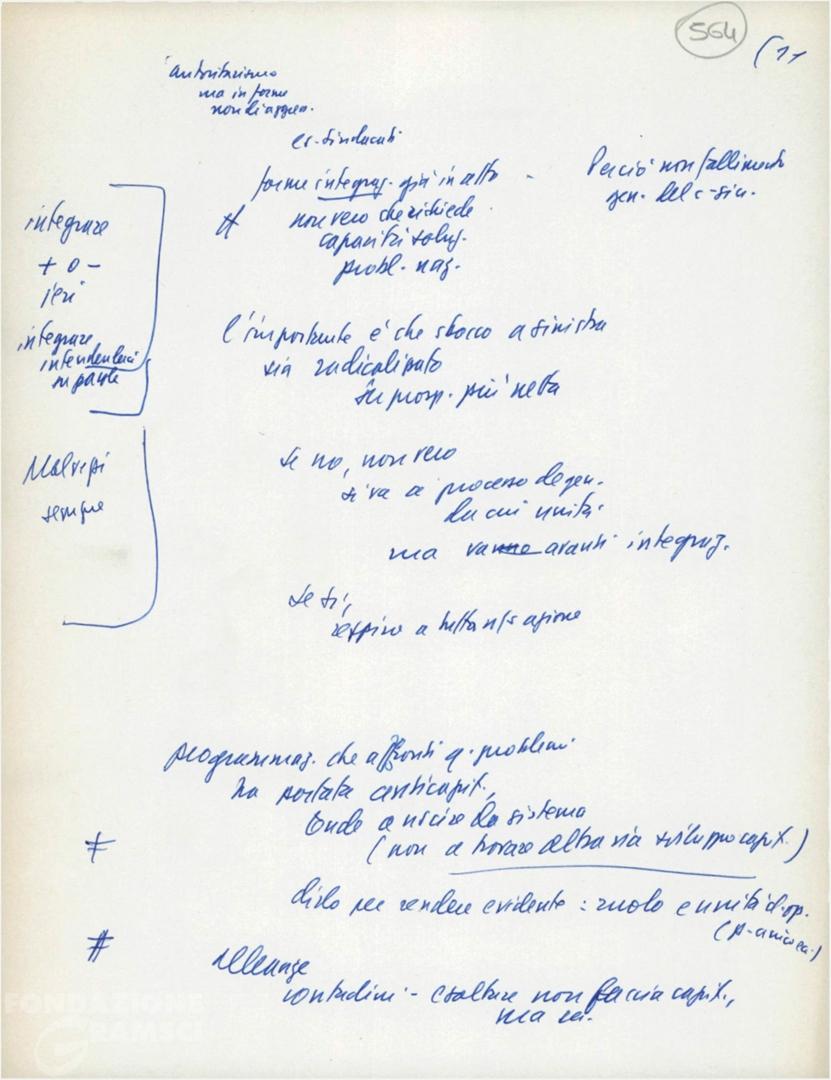 564
(11
autoritarismo
ma in forme
non di aggreg.
es. sindacati
forme integraz. già in atto -
Perciò non fallimento
gen. del c-sin.
non vero che richiede
capacità soluz.
probl. naz.
integrare
+ o -
ieri
integrare
intendendoci
in parte
l'importante è che sbocco a sinistra
sia radicalizzato
in prosp. più netta
Malvezzi
sempre
se no, non vero
si va a processo degen.
da cui unità
ma vanno avanti integraz.
se sì,
respiro a tutta n/s azione
programmaz. che affronti q. problemi
ha portata anticapit.,
onde a uscire da sistema
(non a trovare altra via sviluppo capit.)
dirlo per rendere evidente : ruolo e unità cl. op.
alleanze
contadini - esaltare non faccia capit.,
ma
FONDAZIONE
GRAMSCI